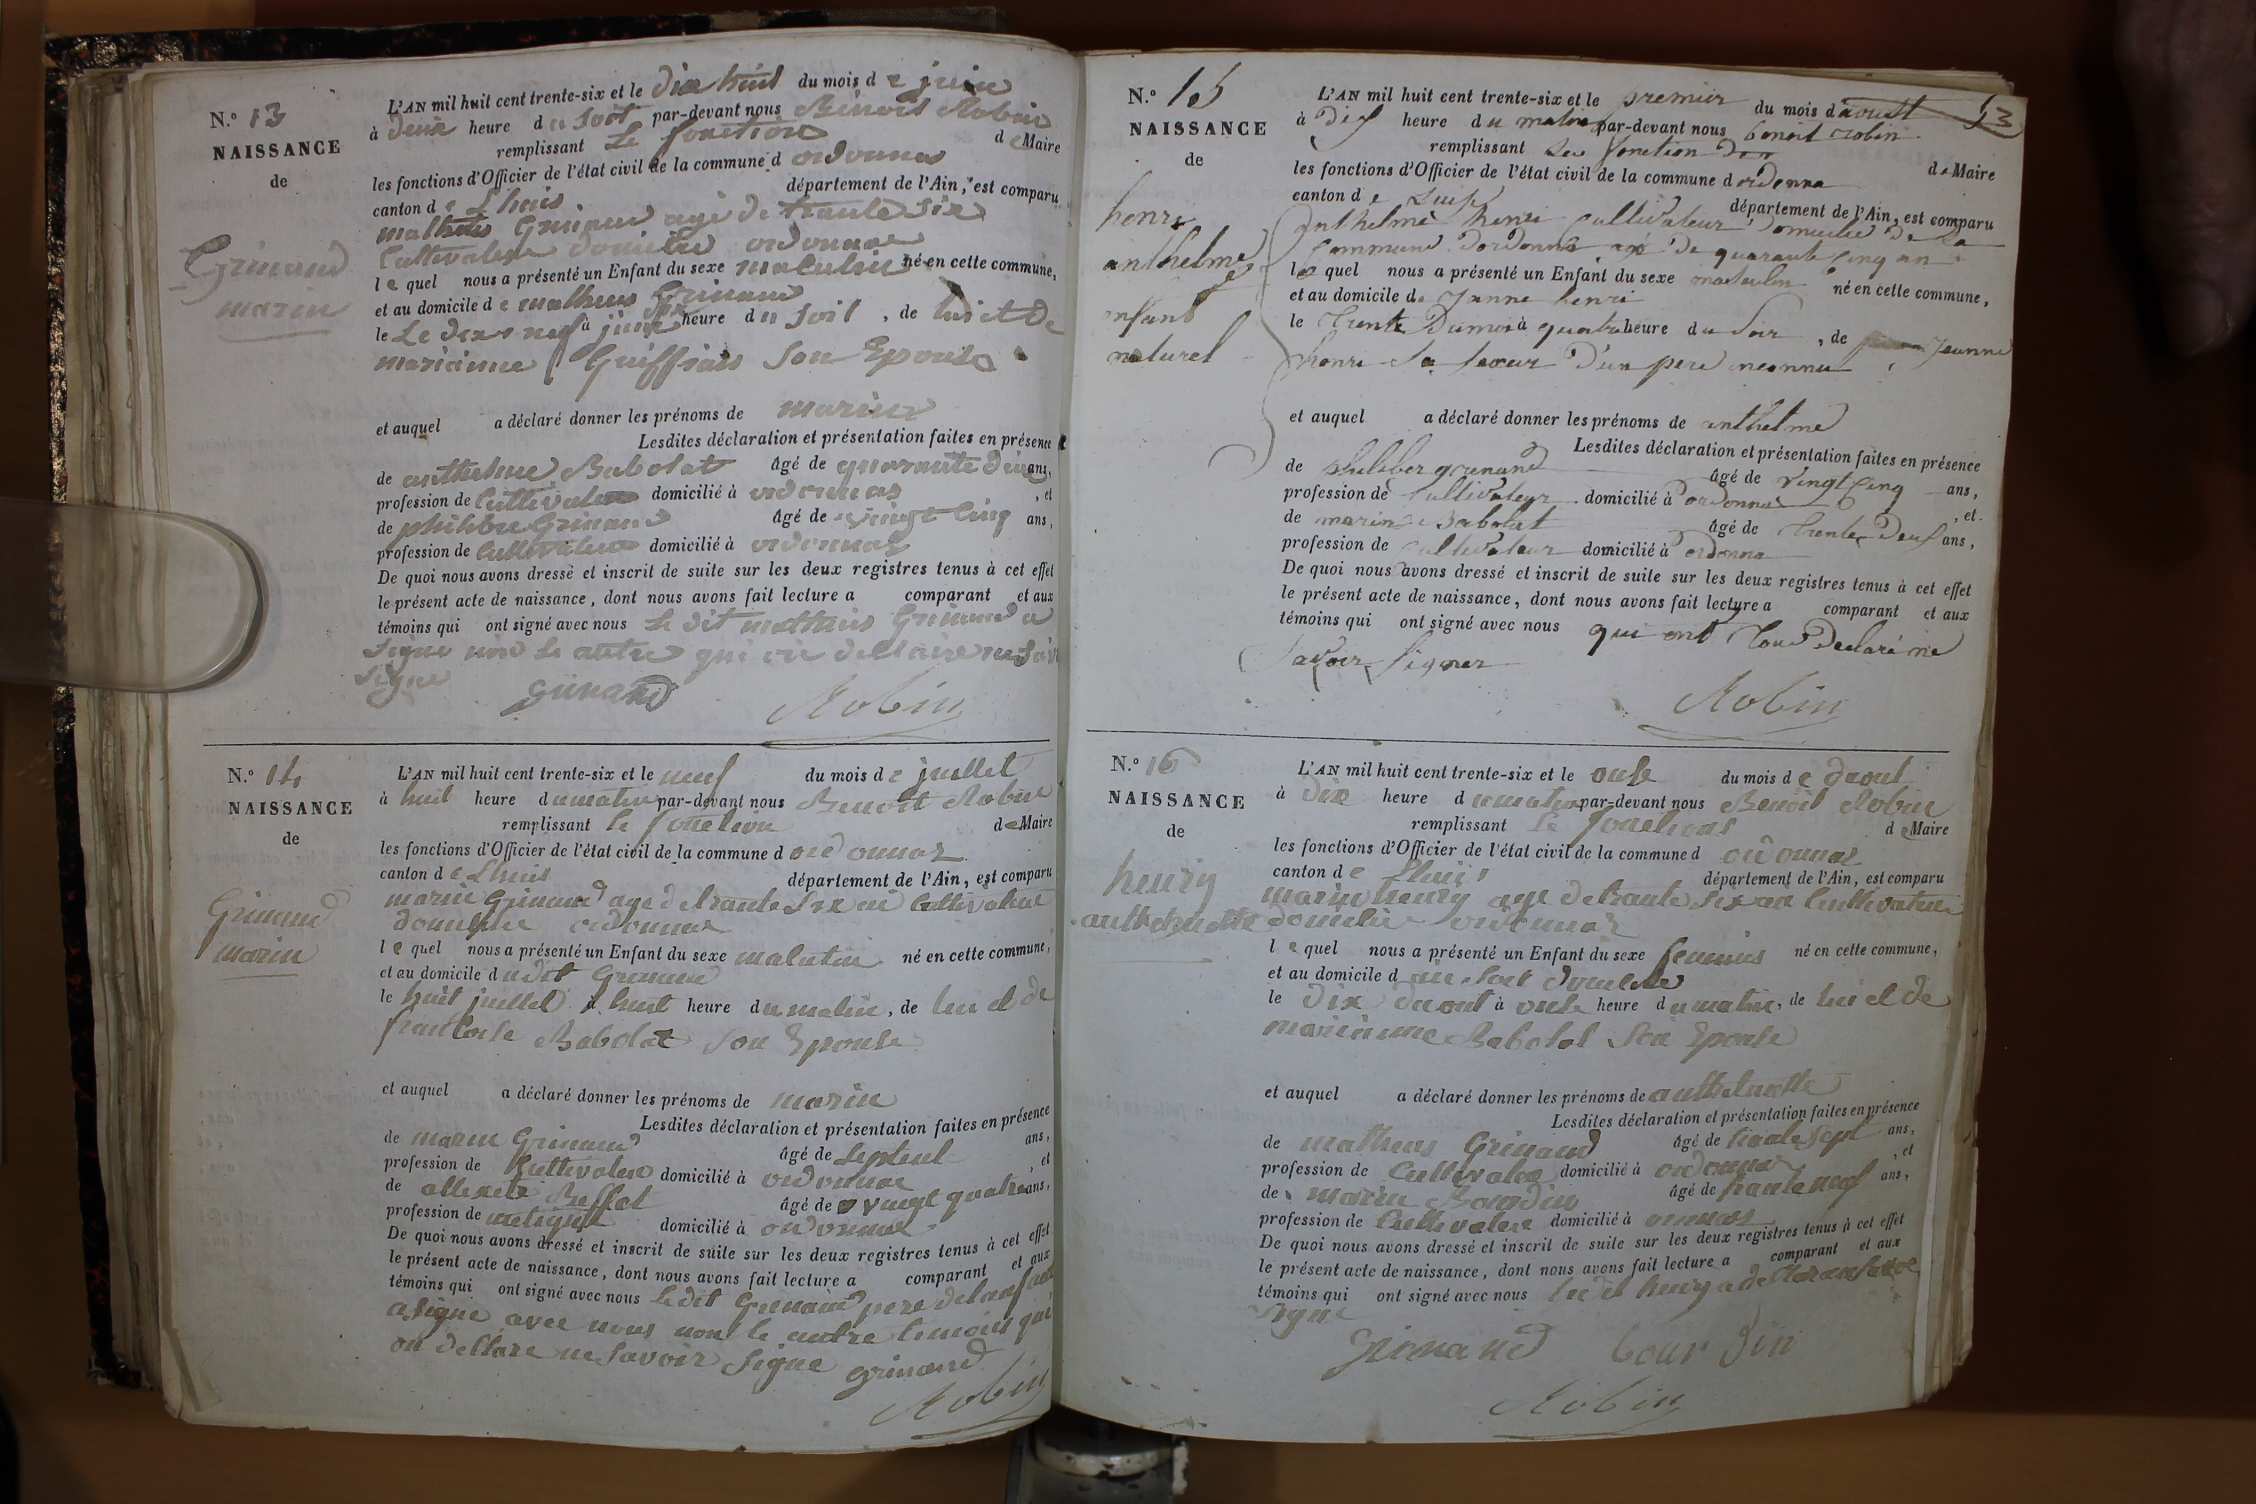 N.º 13
NAISSANCE
de
Grinand
marin
L'AN mil huit cent trente-six et le dix huit du mois de juin
à deux heure du soit par-devant nous Benoit Robin
remplissant le fonction de Maire
les fonctions d'Officier de l'état civil de la commune d ordonnas
canton de Lhuis département de l'Ain, est comparu
mathieu Grinand agé de trante six
Cultivateur domicilié ordonnas
lequel nous a présenté un Enfant du sexe maculin né en cette commune,
et au domicile de mathieus Grinand
le Le dix neuf à heure du soil, de lui et de
marianne Guiffrais son Epouse
et auquel a déclaré donner les prénoms de marin
Lesdites déclaration et présentation faites en présence
de anthelme Babolat âgé de quarante deux ans,
profession de Cultivateur domicilié à ordonnas, et
de philibre Grinand âgé de vingt cinq ans,
profession de Cultivateur domicilié à ordonnas
De quoi nous avons dressé et inscrit de suite sur les deux registres tenus à cet effet
le présent acte de naissance, dont nous avons fait lecture a comparant et aux
témoins qui ont signé avec nous le dit mathieus Grinand a
signe non le autre que
signe
Grinand Robin
N.º 14
NAISSANCE
de
Grinand
marin
L'AN mil huit cent trente-six et le neuf du mois de juillet
à huit heure du matin par-devant nous Benoit Robin
remplissant le fonction de Maire
les fonctions d'Officier de l'état civil de la commune d ordonnas
canton de Lhuis département de l'Ain, est comparu
marin Grinand age de trante six an Cultivateur
domicilie ordonnas
lequel nous a présenté un Enfant du sexe malculin né en cette commune,
et au domicile dudit Grinand
le huit juillet à huit heure du matin, de lui et de
francoise Babolat son Epouse
et auquel a déclaré donner les prénoms de marin
Lesdites déclaration et présentation faites en présence
de marin Grinand âgé de ans,
profession de Cultivateur domicilié à ordonnas, et
de Buffet âgé de vingt quatre ans,
profession de domicilié à ordonnas
De quoi nous avons dressé et inscrit de suite sur les deux registres tenus à cet effet
le présent acte de naissance, dont nous avons fait lecture a comparant et aux
témoins qui ont signé avec nous le dit Grinand pere de lenfant
a signe avec nous non le autre temoins qui
on declare ne savoir signe Grinand
Robin
53
N.º 15
NAISSANCE
de
henri
anthelme
enfant
naturel
L'AN mil huit cent trente-six et le premier du mois daoust
à dix heure du matin par-devant nous benoit robin
remplissant les fonction de Maire
les fonctions d'Officier de l'état civil de la commune dordonna
canton de Luis département de l'Ain, est comparu
anthelme henri cultivateur domicilié de la
commune dordonna agé de quarante cinq an
lequel nous a présenté un Enfant du sexe masculin né en cette commune,
et au domicile de Janne henri
le trente Dumois à quatre heure du soir, de Jeanne
henri sa soeur d'un pere inconnu
et auquel a déclaré donner les prénoms de anthelme
Lesdites déclaration et présentation faites en présence
de philiber grinand âgé de vingt cinq ans,
profession de cultivateur domicilié à ordonnas, et
de marin Babolat âgé de trente deux ans,
profession de cultivateur domicilié à ordonna
De quoi nous avons dressé et inscrit de suite sur les deux registres tenus à cet effet
le présent acte de naissance, dont nous avons fait lecture a comparant et aux
témoins qui ont signé avec nous qui ont tous declaré ne
savoir signer
Robin
N.º 16
NAISSANCE
de
henry
L'AN mil huit cent trente-six et le onse du mois de daout
à dix heure du matin par-devant nous Benoit Robin
remplissant le fonctions de Maire
les fonctions d'Officier de l'état civil de la commune d ordonnas
canton de Lhuis département de l'Ain, est comparu
marin henry age de trante six an Cultivateur
domicilie ordonnas
lequel nous a présenté un Enfant du sexe feminis né en cette commune,
et au domicile d
le dix daout à onse heure du matin, de lui et de
marianne Babolat son Epouse
et auquel a déclaré donner les prénoms de
Lesdites déclaration et présentation faites en présence
de mathieus Grinand âgé de trante sept ans,
profession de Cultivateur domicilié à ordonnas, et
de marin Bourdin âgé de trante neuf ans,
profession de Cultivateur domicilié à
De quoi nous avons dressé et inscrit de suite sur les deux registres tenus à cet effet
le présent acte de naissance, dont nous avons fait lecture a comparant et aux
témoins qui ont signé avec nous le dit henry
signe
Grinand bourdin
Robin